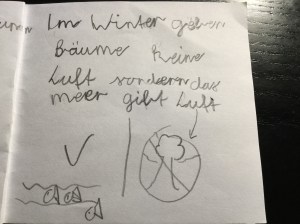 Im Winter geben
Bäume keine
Luft sonderen das
meer gibt Luft